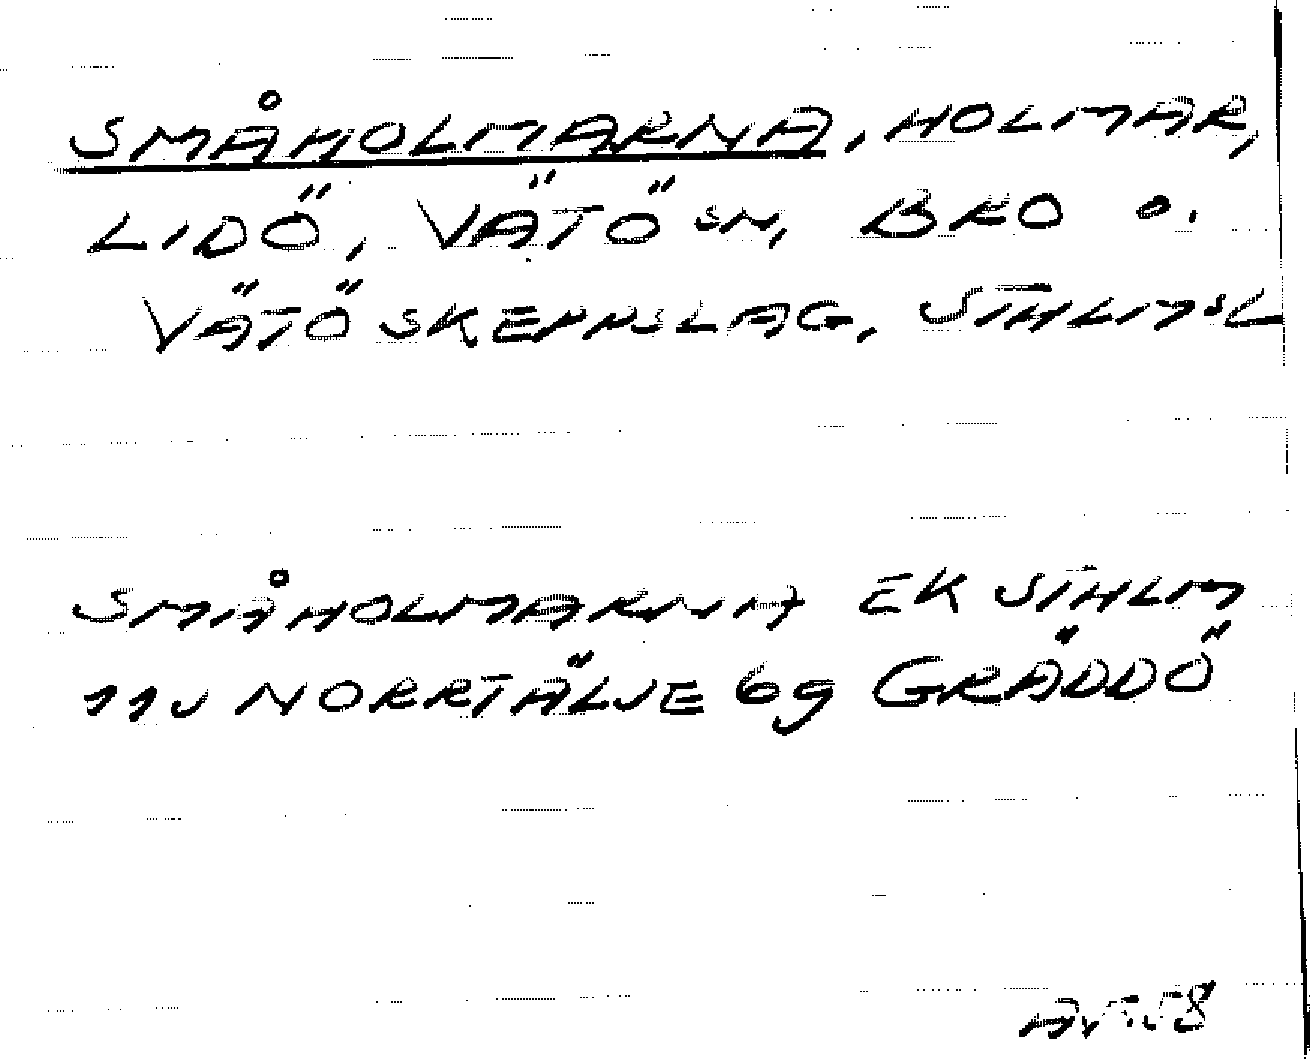 SMÅHOLMARNA, HOLMAR,
LIDÖ, VÄTÖ SN, BRO O.
VÄTÖ SKEPPSLAG, STHLMSL
SMÅHOLMARNA EK STHLM
11J NORRTÄLJE 69 GRÄDDÖ